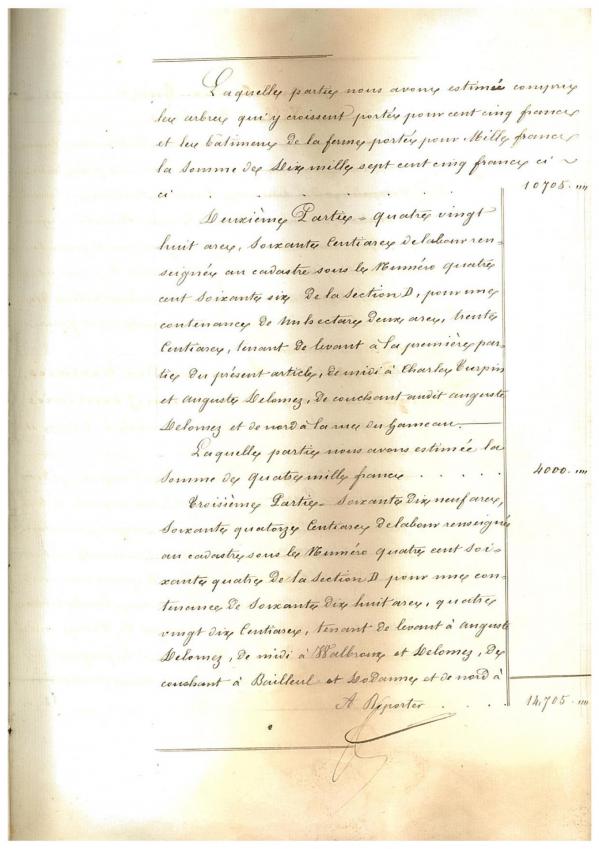 Laquelle partie nous avons estimée compris
les arbres qui y croissent portés pour cent cinq francs
et les bâtimens de la ferme portés pour Mille francs
la somme de Dix mille sept cent cinq francs ci ~
ci . . . . . . . . 10705 . „„
Deuxième Partie = quatre vingt
huit ares, Soixante Centiares de labour ren-
seignée au cadastre sous le Numéro quatre
cent soixante six de la section D, pour une
contenance de un hectare deux ares, trente
Centiares, tenant de levant à la première par-
tie du présent article, de midi à Charles Turpin
et Auguste Delomez, de couchant audit auguste
Delomez et de nord à la rue du hameau.
Laquelle partie nous avons estimée la
somme de quatre mille francs . . . . . 4000 . „„
Troisième Partie = Soixante Dix neuf ares,
Soixante quatorze Centiares de labour renseignée
au cadastre sous le Numéro quatre cent soi-
xante quatre de la section D pour une con-
tenance de Soixante dix huit ares, quatre
vingt dix Centiares, tenant de levant à auguste
Delomez, de midi à Walbroux et Delomez, de
couchant à Bailleul et Dodanne et de nord à
A Réporter . . . . 14,705 . „„